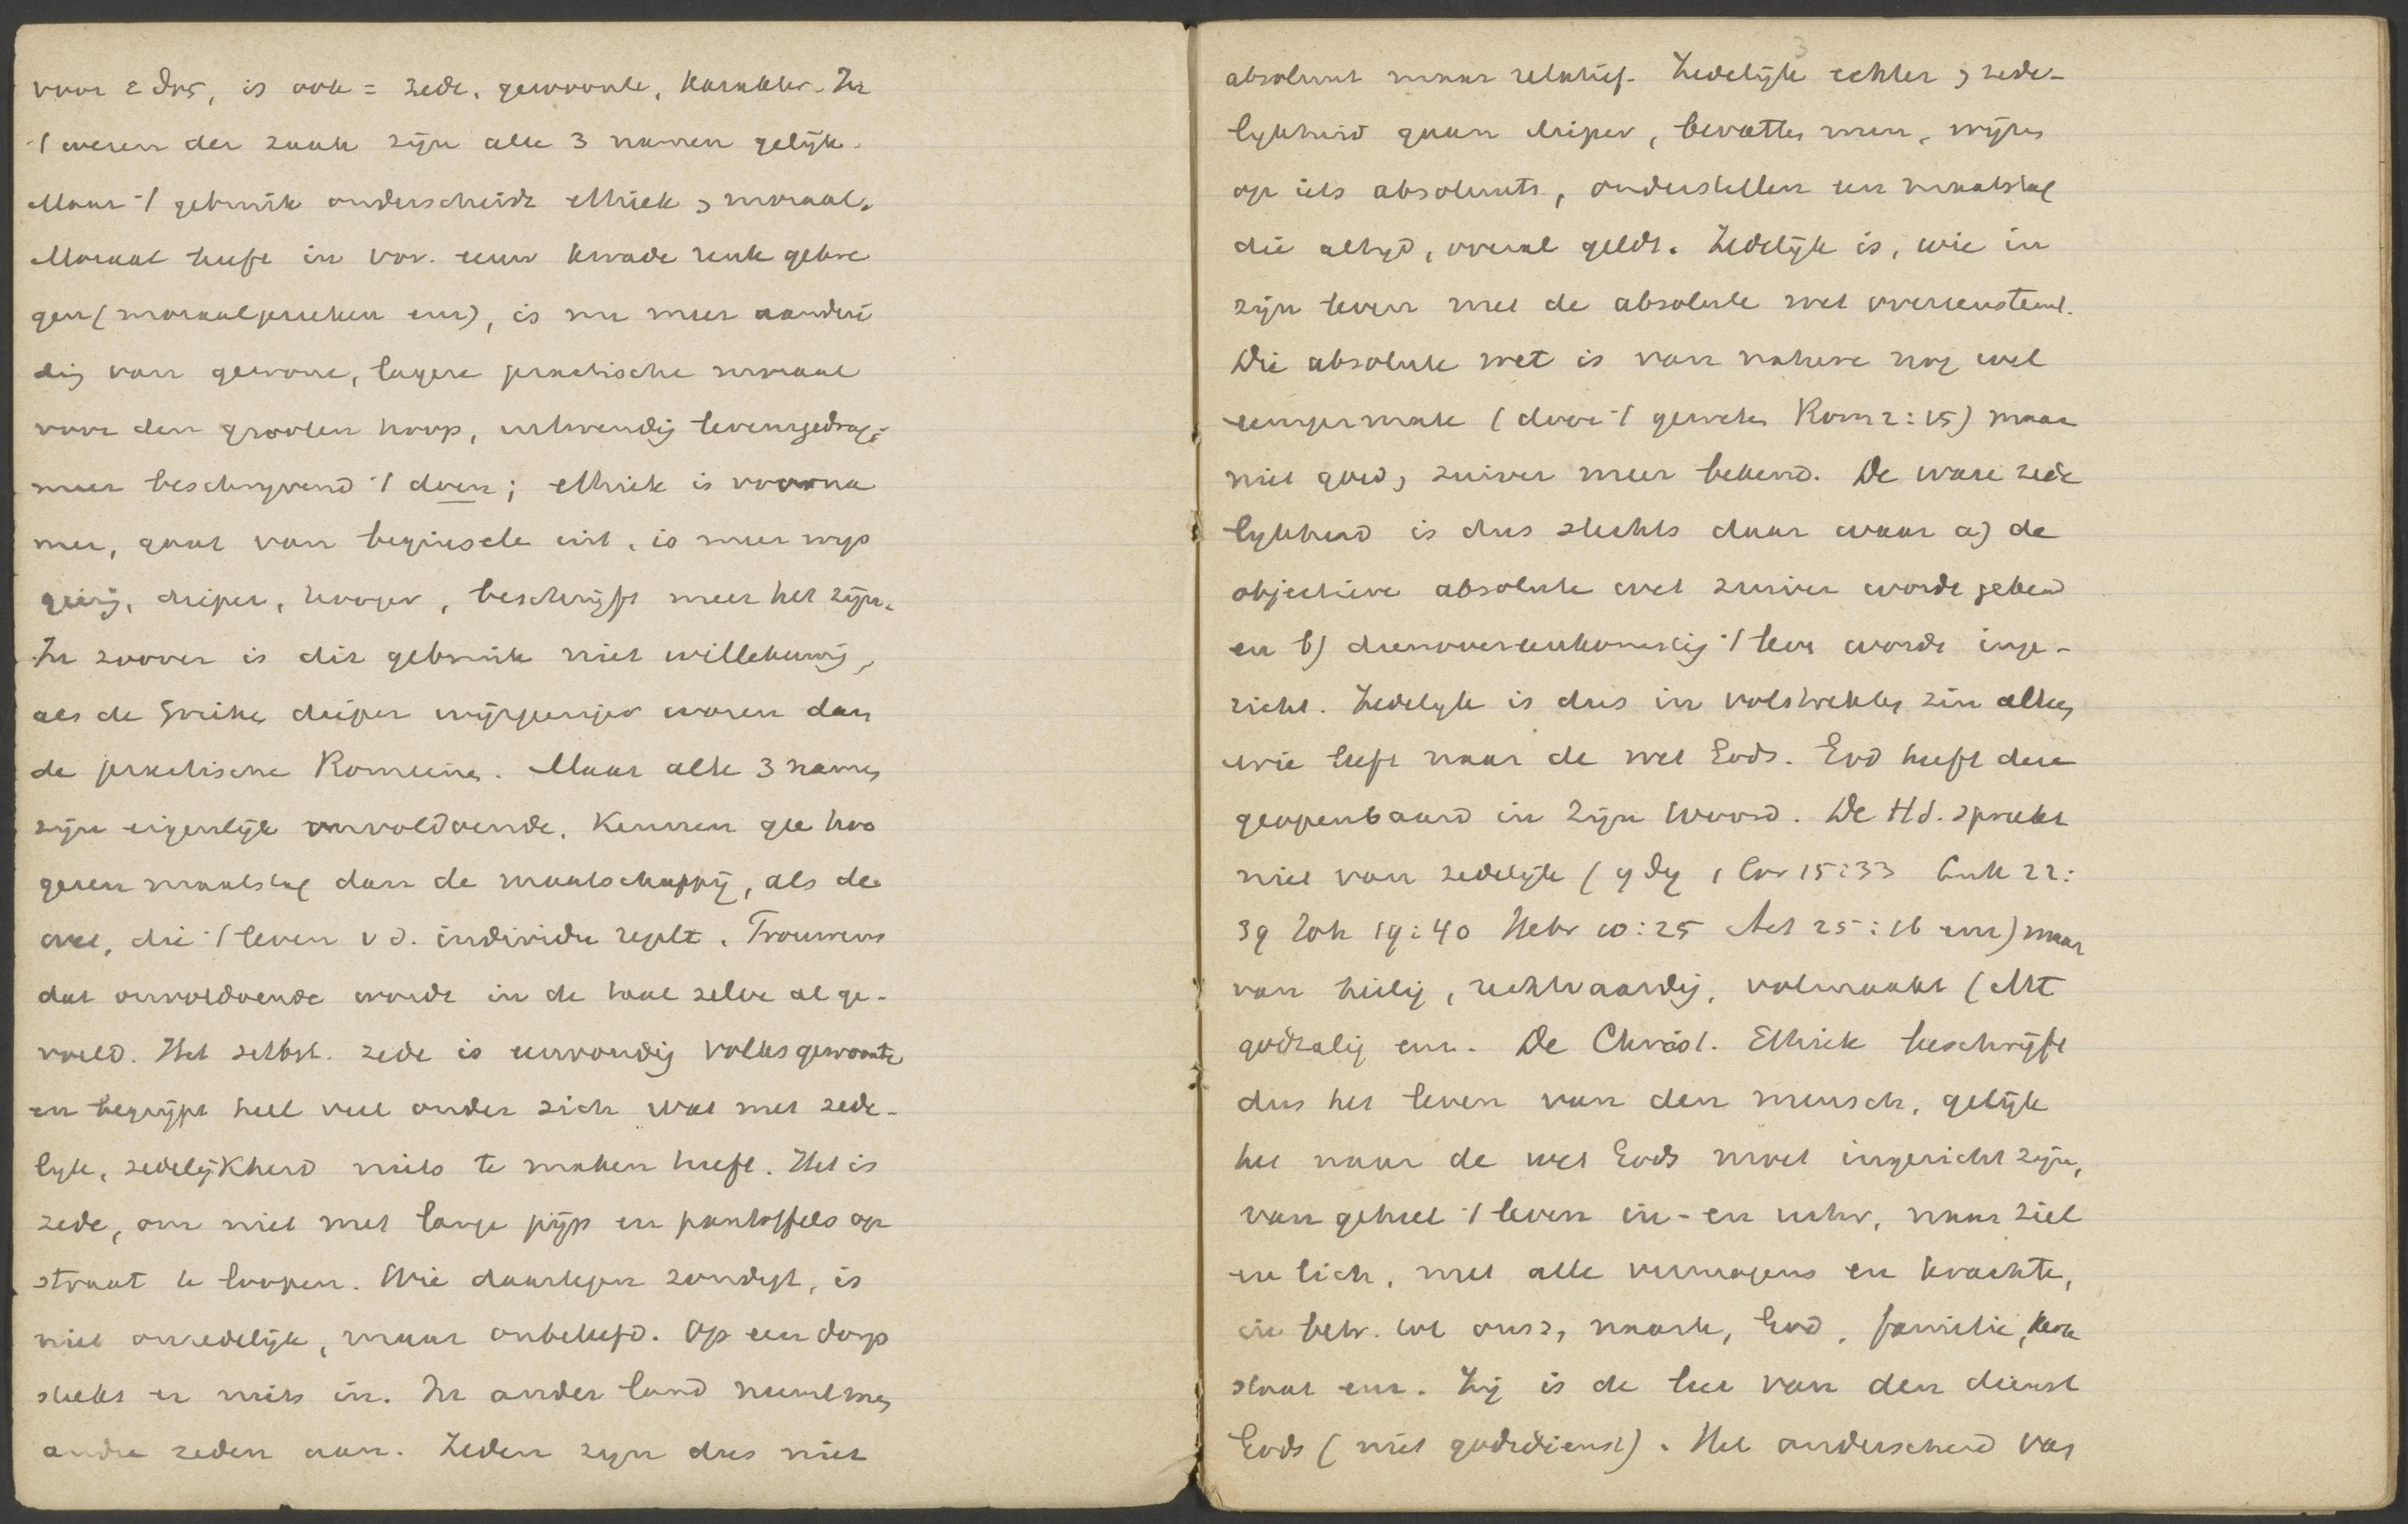 voor εθος, is ook = zede, gewoonte, karakter. In
't wezen der zaak zijn alle 3 namen gelijk.
Maar 't gebruik onderscheidt ethiek , moraal.
Moraal heeft in vor. eeuw kwade reuk gekre
gen (moraalpreeken enz), is nu meer aandui
dig van gewone, lagere praktische moraal
voor den grooten hoop, uitwendig levensgedrag;
meer beschrijvend 't doen; ethiek is voorna
mer, gaat van beginsele uit, is meer wijs
geerig, dieper, hooger, beschrijft meer het zijn.
In zoover is dit gebruik niet willekeurig,
als de Grieken dieper wijsgeeriger waren dan
de praktische Romeinen. Maar alle 3 namen
zijn eigenlijk onvoldoende. Kennen gee hoo
geren maatstaf dan de maatschappij, als de
wet, die 't leven v d. individu regelt. Trouwens
dat onvoldoende wordt in de taal zelve al ge-
voeld. Het zelfst. zede is eenvoudig volksgewoonte
en begrijpt heel veel onder zich wat met zede-
lijk, zedelijkheid niets te maken heeft. Het is
zede, om niet met lange pijp en pantoffels op
straat te loopen. Wie daartegen zondigt, is
niet onzedelijk, maar onbeleefd. Op een dorp
steekt er niets in. In ander land neemt men
andre zeden aan. Zeden zijn dus niet
3
absoluut maar relatief. Zedelijk echter , zede-
lijkheid gaan dieper, bevatten meer, wijzen
op iets absoluuts, onderstellen een maatstaf
die altijd, overal geldt. Zedelijk is, wie in
zijn leven met de absolute wet overeenstemt.
Die absolute wet is van nature nog wel
eenigermate (door 't geweten Rom 2:15) maar
niet goed, zuiver meer bekend. De ware zede
lijkheid is dus slechts daar waar a) de
objectieve absolute wet zuiver wordt gekend
en b) dienovereenkomstig 't leven wordt inge-
richt. Zedelijk is dus in volstrekten zin alleen
wie leeft naar de wet Gods. God heeft deze
geopenbaard in Zijn Woord. De H.S. spreekt
niet van zedelijk (ηθη 1 Cor 15:33 Luk 22:
39 Joh 19:40 Hebr 10:25 Act 25:16 enz) maar
van heilig, rechtvaardig, volmaakt (Mt
godzalig enz. De Christ. Ethiek beschrijft
dus het leven van den mensch, gelijk
het naar de wet Gods moet ingericht zijn,
van geheel 't leven in- en uitw, naar ziel
en lich, met alle vermogens en krachte,
in betr. tot onsz, naaste, God, familie, kerk
staat enz. Zij is de leer van den dienst
Gods (niet godsdienst). Het onderscheid van